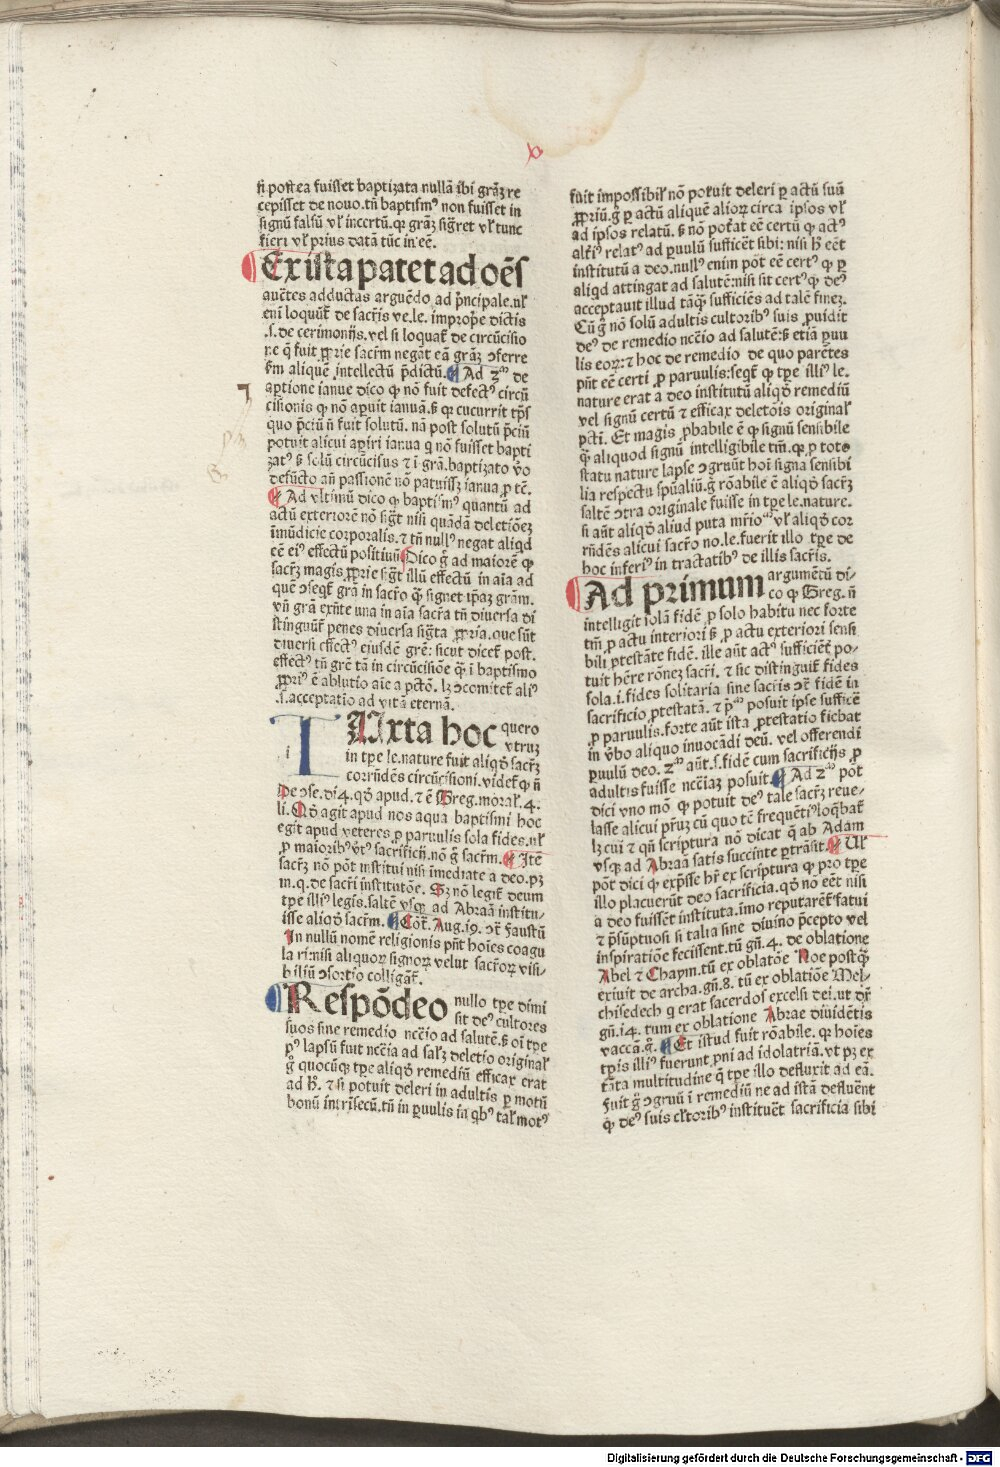 si postea fuisset baptizata nullā ibi grāꝫ re
cepisset de nouo. tn̄ baptismꝰ non fuisset in
signū falsū vl̕ incertū. qꝛ grāꝫ sig̅ret vl̕ tunc
fieri vl̕ prius datā tūc in eē.
Ex ista patet ad oēs
auētes adductas arguēdo ad p̄ncipale. nl̕
eni loquūt̕ de sacr̄is ve. le. improp̄e dictis
.s. de cerimonijs. vel si loquāt̕ de circūcisio
ne q̄ fuit ꝓprie sacr̄m negāt eā grāꝫ ↄferre
fm aliquē intellectū p̄dictū. Ad 2ᵐ de
aꝑtione ianue dico ꝙ nō fuit defectꝰ circū
cisionis ꝙ nō aꝑuit ianuā. ß qꝛ cucurrit tp̄s
quo p̄ciū n̄ fuit solutū. nā post solutū p̄ciū
potuit alicui aꝑiri ianua q nō fuisset bapti
zatꝰ ß solū circūcisus ⁊ ī grā. baptizato v̄o
defūcto an̄ passionē nō patuissꝫ ianua ꝓ tē.
Ad vltimū dico ꝙ baptismꝰ quantū ad
actū exteriorē nō sig̅t nisi quādā deletiōeꝫ
īmūdicie corporalis. ⁊ tn̄ nullꝰ negat aliqd
eē eiꝰ effectū positiuū Dico g̅ ad maiorē ꝙ
sacr̄ꝫ magis ꝓprie sig̅t illū effectū in aīa ad
quē ↄseqt̕ grā in sacro q̄ signet ip̄aꝫ grām.
vn̄ grā exn̄te una in aīa sacr̄a tn̄ diuersa di
stinguūt̕ penes diuersa sig̅ta ꝓpria. que sūt
diuersi effectꝰ eiusdē grē: sicut dicet̕ post.
effectꝰ tn̄ grē tā in circūcisiōe q̄ ī baptismo
ꝓpriꝰ ē ablutio aīe a pctō. lꝫ ↄcomitet̕ aliꝰ
.i. acceptatio ad vitā eternā.
IUxta hoc quero
vtruꝫ
in tp̄e le. nature fuit aliqd̄ sacr̄ꝫ
corrn̄dēs circūcisioni. videt̕ ꝙ n̄
De ↄse. di. 4. qd̄ apud. ⁊ ē Greg. moral̕. 4.
li. Qd̄ agit apud nos aqua baptismi hoc
egit apud veteres ꝓ paruulis sola fides. vl̕
ꝓ maioribꝰ v̕tꝰ sacrificij. nō g̅ sacr̄m. Itē
sacr̄ꝫ nō pōt institui nisi īmediate a deo. pꝫ
in. q. de sacr̄i institutōe. Sꝫ nō legit̕ deum
tp̄e illiꝰ legis. saltē vsqꝫ ad Abraā institu-
isse aliqd̄ sacr̄m. Cōt̕. Aug. 19. ↄt̕ Faustū
In nullū nomē religionis pn̄t hoīes coagu
la ri nisi aliquoꝝ signoꝝ velut sacr̄oꝝ visi-
biliū ↄsortio colligāt̕.
Respōdeo nullo tp̄e dimi
sit deꝰ cultores
suos sine remedio nccēio ad salutē. ß oī tp̄e
pꝰ lapsū fuit nccēia ad salꝫ deletio original̕
g̅ quocūqꝫ tp̄e aliqd̄ remediū efficax erat
ad h̄. ⁊ si potuit deleri in adultis ꝑ motū
bonū intrīsecū. tn̄ in ꝑuulis in qbꝰ tal̕ motꝰ
fuit impossibil̕ nō potuit deleri ꝑ actū suū
ꝓpriū. g̅ ꝑ actū aliquē alioꝝ circa ipsos vl̕
ad ipsos relatū. ß nō potāt eē certū ꝙ actꝰ
alt̕iꝰ relatꝰ ad ꝑuulū sufficēt sibi: nisi h̄ eēt
institutū a deo. nullꝰ enim pōt eē certꝰ ꝙ ꝑ
aliqd attingat ad salutē: nisi sit certꝰ ꝙ deꝰ
acceptauit illud tāq̄ sufficiēs ad talē fineꝫ.
Cū g̅ nō solū adultis cultoribꝰ suis ꝓuidit
deꝰ de remedio nccēio ad salutē: ß etiā ꝑuu
lis eoꝝ: ⁊ hoc de remedio de quo parētes
pn̄t eē certi ꝓ paruulis: seqt̕ ꝙ tp̄e illiꝰ le.
nature erat a deo institutū aliqd̄ remediū
vel signū certū ⁊ efficax deletōis original̕
pctī. Et magis ꝓbabile ē ꝙ signū sensibile
q̄ aliquod signū intelligibile tm̄. qꝛ ꝓ toto
statu nature lapse ↄgruūt hoī signa sensibi
lia respectu sp̄ualiū. g̅ rōabile ē aliqd̄ sacr̄ꝫ
saltē ↄtra originale fuisse in tp̄e le. nature.
si aūt aliqd̄ aliud puta mr̄io̅ vl̕ aliqd̄ cor
rn̄dēs alicui sacr̄o no. le. fuerit illo tp̄e de
hoc inferiꝰ in tractatibꝰ de illis sacr̄is.
Ad primum argumētū di-
co ꝙ Greg. n̄
intelligit solā fidē ꝓ solo habitu nec forte
tm̄ ꝓ actu interiori ß ꝓ actu exteriori sensi
bili ꝓtestāte fidē. ille aūt actꝰ sufficiēt̕ po-
tuit h̄ere rōneꝫ sacr̄i. ⁊ sic distinguit̕ fides
sola. i. fides solitaria sine sacr̄is ↄt̕ fidē in
sacrificio ꝓtestatā. ⁊ pᵐ posuit ipse sufficē
ꝓ paruulis. forte aūt ista ꝓtestatio fiebat
in v̄bo aliquo inuocādi deū. vel offerendi
ꝑuulū deo. 2ᵐ aūt. s. fidē cum sacrificijs ꝓ
adultis fuisse nccēiaꝫ posuit Ad 2ᵐ pōt
dici vno mō ꝙ potuit deꝰ tale sacr̄ꝫ reue-
lasse alicui pr̄uꝫ cū quo tē frequētiꝰ loq̄bat̕
lꝫ cui ⁊ qn̄ scriptura nō dicat qꝛ ab Adam
vsqꝫ ad Abraā satis succinte ꝑtrāsit. Ul̕
pōt dici ꝙ exp̄sse h̄r ex scriptura ꝙ pro tp̄e
illo placuerūt deo sacrificia. qd̄ nō eēt nisi
a deo fuissēt instituta. īmo reputarēt̕ fatui
⁊ p̄sūptuosi si talia sine diuino p̄cepto vel
inspiratiōe fecissent. tū gn̄. 4. de oblatione
Abel ⁊ Chaym. tū ex oblatōe Noe postq̄
exiuit de archa. gn̄. 8. tū ex oblatiōe Mel-
chisedech q erat sacerdos excelsi dei. ut dr̄
gn̄. 14. tum ex oblatione Abrae diuidētis
vaccā. q̄. Et istud fuit rōabile. qꝛ hoīes
tp̄is illiꝰ fuerunt ꝓni ad idolatriā. vt pꝫ ex
tāta multitudine q̄ tp̄e illo defluxit ad eā.
fuit g̅ ↄgruū ī remediū ne ad istā defluēnt
ꝙ deꝰ suis cl̕toribꝰ instituēt sacrificia sibi
Digitalisierung gefördert durch die Deutsche Forschungsgemeinschaft - DFG